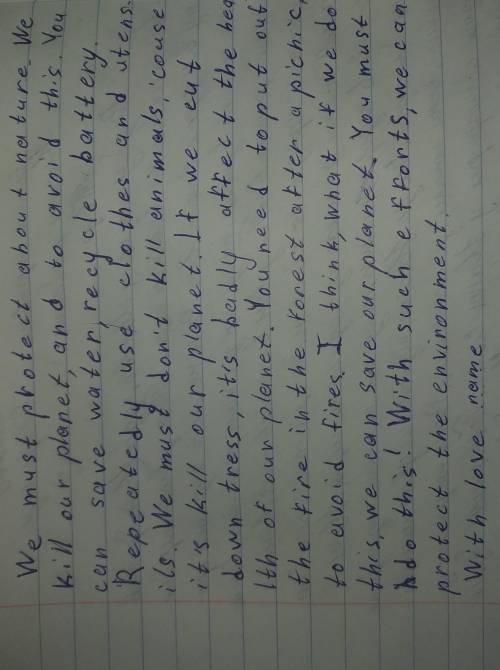 We must protect about nature. We
kill our planet, and to avoid this. You
can save water, recycle battery.
Repeatedly use clothes and utens
ils. We must don't kill animals, 'couse
it's kill our planet. If we cut
down tress, it's badly affect the hea
lth of our planet. You need to put out
the fire in the forest after a pichic,
to avoid fires. I think, what if we do
this, we can save our planet. You must
do this! With such efforts, we can
protect the environment.
With love name